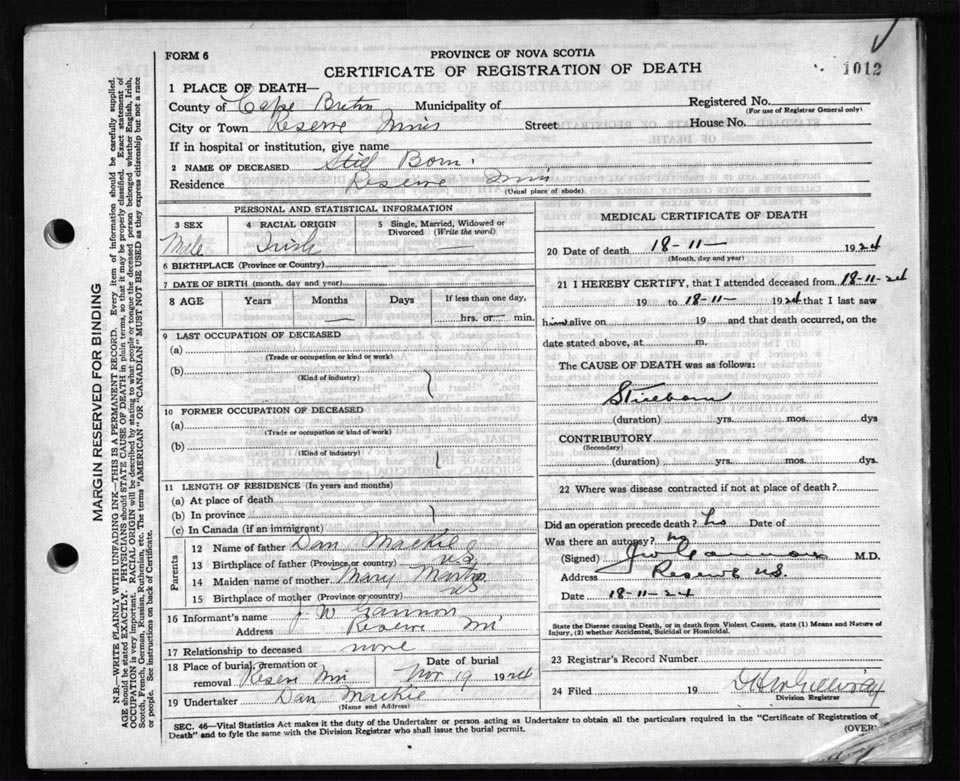 FORM 6
PROVINCE OF NOVA SCOTIA
CERTIFICATE OF REGISTRATION OF DEATH
1012
1 PLACE OF DEATH—
County of Cape Breton Municipality of
Registered No.
(For use of Registrar General only)
City or Town Reserve Mines Street House No.
If in hospital or institution, give name
2 NAME OF DECEASED Still Born
Residence Reserve Mines
(Usual place of abode)
PERSONAL AND STATISTICAL INFORMATION
3 SEX 4 RACIAL ORIGIN 5 Single, Married, Widowed or Divorced (Write the word)
Male Irish —
6 BIRTHPLACE (Province or Country)
7 DATE OF BIRTH (month, day and year)
8 AGE Years Months Days If less than one day,
— hrs. or — min.
9 LAST OCCUPATION OF DECEASED
(a)
(Trade or occupation or kind or work)
(b)
(Kind of industry)
10 FORMER OCCUPATION OF DECEASED
(a)
(Trade or occupation or kind or work)
(b)
(Kind of industry)
11 LENGTH OF RESIDENCE (In years and months)
(a) At place of death
(b) In province
(c) In Canada (if an immigrant)
Parents
12 Name of father Dan Mackie
13 Birthplace of father (Province or country) N.S
14 Maiden name of mother Mary
15 Birthplace of mother (Province or country) NS
16 Informant's name J. W Gannon
Address Reserve
17 Relationship to deceased none
18 Place of burial, cremation or removal Date of burial
Nov 19 1924
19 Undertaker Dan Mackie
(Name and Address)
MEDICAL CERTIFICATE OF DEATH
20 Date of death 18-11- 1924
(Month, day and year)
21 I HEREBY CERTIFY, that I attended deceased from 18-11-24
19 to 18-11- 1924 that I last saw
him alive on 19 — and that death occurred, on the
date stated above, at m.
The CAUSE OF DEATH was as follows:
Stillborn
(duration) yrs. mos. dys
CONTRIBUTORY
(Secondary)
(duration) yrs. mos. dys.
22 Where was disease contracted if not at place of death?
Did an operation precede death? No Date of
Was there an autopsy? No
(Signed) J W Gannon M.D.
Address Reserve N.S.
Date 18-11-24
State the Disease causing Death, or in death from Violent Causes, state (1) Means and Nature of
Injury, (2) whether Accidental, Suicidal or Homicidal.
23 Registrar's Record Number
24 Filed 19
Division Registrar
SEC. 46—Vital Statistics Act makes it the duty of the Undertaker or person acting as Undertaker to obtain all the particulars required in the "Certificate of Registration of
Death" and to fyle the same with the Division Registrar who shall issue the burial permit.
(OVER)
MARGIN RESERVED FOR BINDING
N.B.—WRITE PLAINLY WITH UNFADING INK—THIS IS A PERMANENT RECORD. Every item of information should be carefully supplied.
AGE should be stated EXACTLY. PHYSICIANS should STATE CAUSE OF DEATH in plain terms, so that it may be properly classified. Exact statement of
OCCUPATION is very important. RACIAL ORIGIN will be described by stating to what people or tongue the deceased person belonged whether English, Irish,
Scotch, French, German, Russian, Ruthenian, etc. The terms "AMERICAN" OR "CANADIAN" MUST NOT BE USED as they express citizenship but not a race
or people. See instructions on back of Certificate.